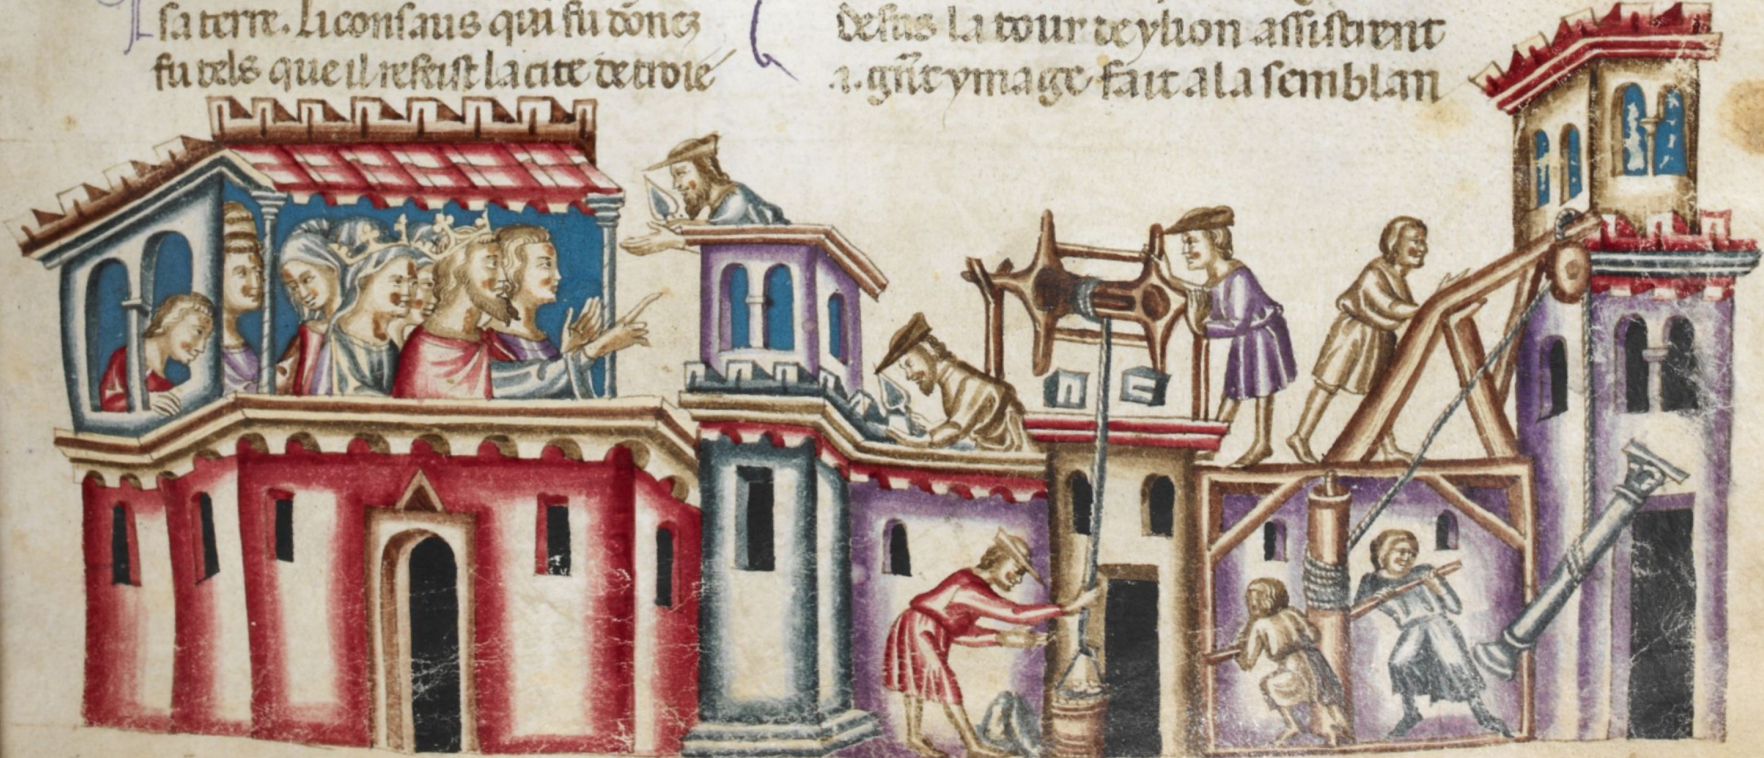 sa terre. Li consaus qui fu dones
fu tels que il refeist la cite de troie
desus la tour de ylion assistrent
.i. grãt ymage fait a la semblan